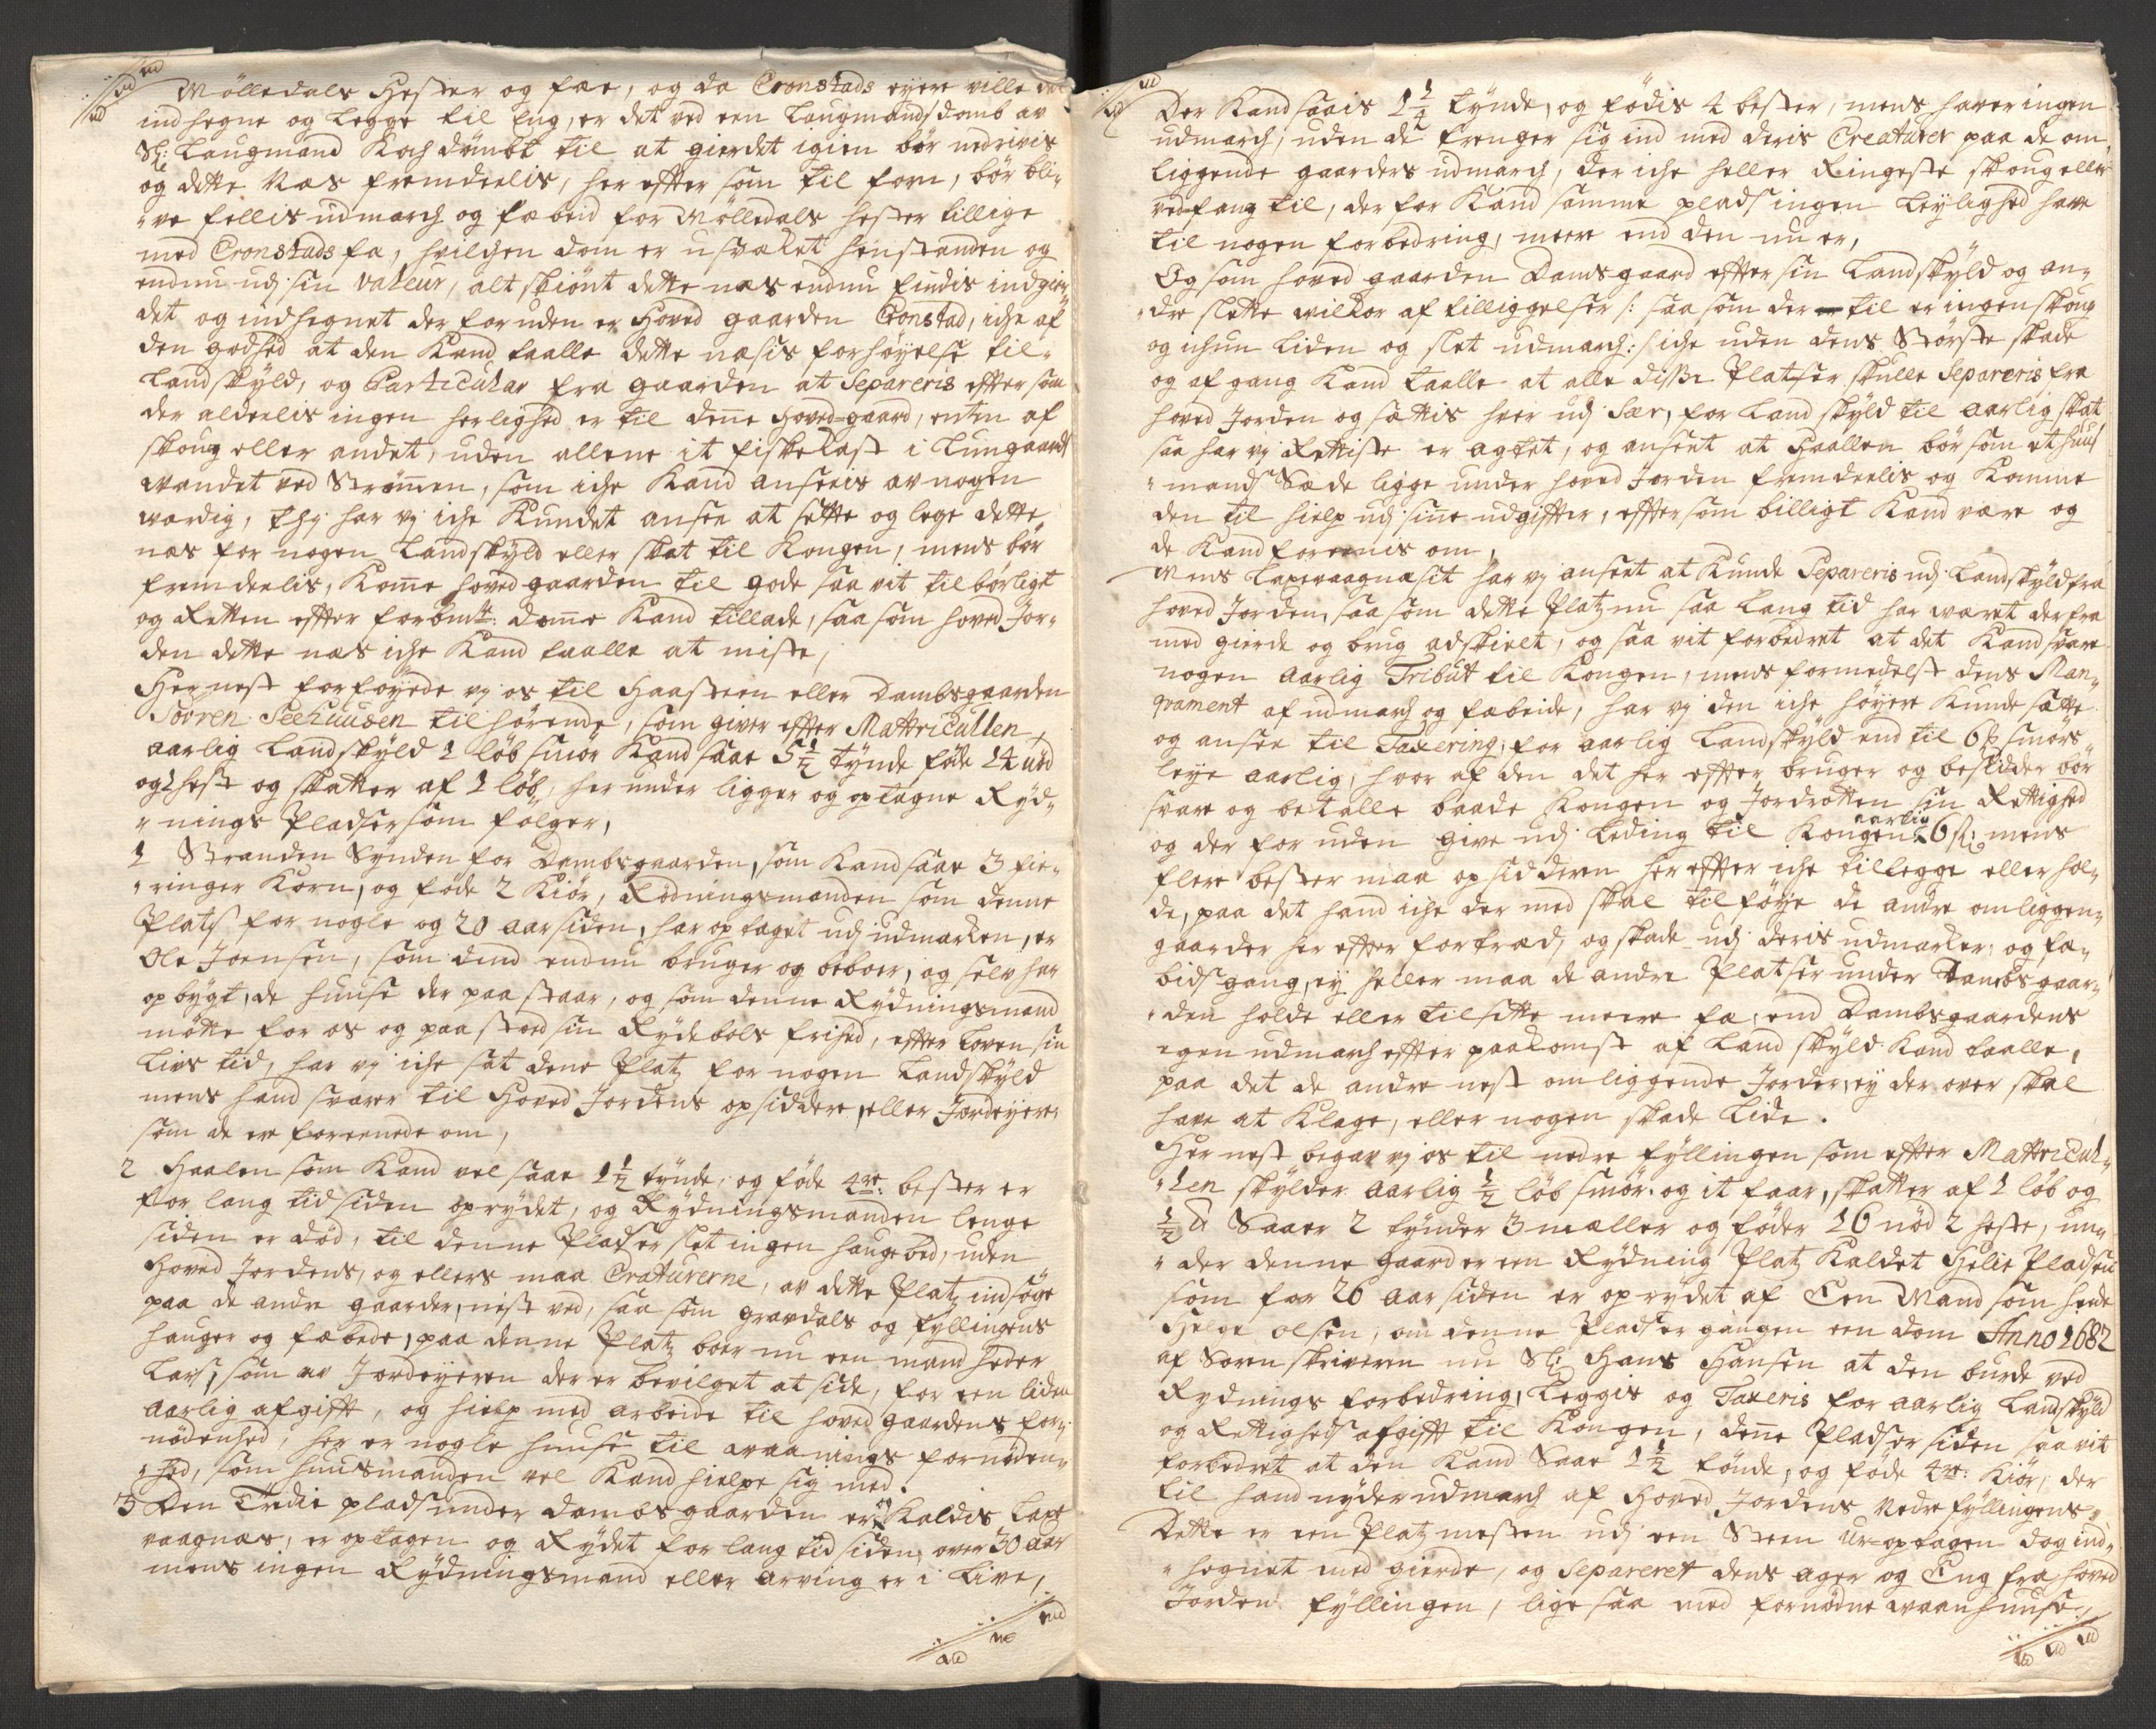 Mölledals Hester og fæe, og da Cronstads eyere ville det
indhegne og Legge til Eng, er det ved een Laugmands domb av
Sl: Laugmand Koch dömbt til at gierdet igien bör nedrivis
og dette Næs fremdeelis, her effter som til forn, bör bli-
ve fellis udmarch og fæbeid for Mölledals hester tillige
med Cronstads fæ, hvilchen dom er usvæket henstanden og
endnu udj sin valeur, alt skiönt dette næs endnu findis indgier-
det og indhegnet der foruden er Hoved gaarden Cronstad, iche af
den godhed at den Kand taalle dette næsis forhöyelse til
Landskyld, og Particular fra gaarden at Separeris effter som
der alderlis ingen herlighed er til denne Hoved-gaard, enten af
skoug eller andet, uden allene it fiskekast i Lungaards
wandet ved Strömen, som iche Kand anseeis av nogen
wærdig, thj har vj iche Kundet ansee at sette og lege dette
næs for nogen Landskyld eller skat til Kongen, mens bör
fremdeelis, Kome hovedgaarden til gode saa vit tilbörligt
og Retten effter forbmte: dome Kand tillade, saa som hoved Jor-
den dette næs iche Kand taalle at miste,
Her nest forföyede vj os til Haasteen eller Dambsgaarden
Sörren Seehuusen tilhörende, som giver effter Mattricullen
aarlig Landskyld 1 löb smör Kand saae 5½ tynde föde 14 nöd
og 1 hest og skatter af 1 löb, her under ligger og optagne Ryd-
nings Pladser som fölger,
1 Stranden Synden for Dambsgaarden, som Kand saae 3 fie-
ringer Korn, og föde 2 Kiör, Rödningsmanden som denne
Plats for nogle og 20 aar siden, har optaget udj udmarken, er
Ole Joensen, som dend endnu bruger og beboer, og selv har
opbygt, de huuse der paa staar, og som denne Rydningsmand
mötte for os og paastoed sin Rydebols frihed, effter Loven sin
Livs tid, har vj iche sat dene Platz for nogen Landskyld
mens hand svarer til Hoved Jordens opsiddere, eller Jordeyere,
som de ere foreenede om,
2 Haalen som Kand vel saae 1½ tynde, og föde 4re: bester er
for lang tid siden oprydet, og Rydningsmanden lenge
siden er död, til denne Plads er slet ingen haugebed, uden
Hoved Jordens, og ellers maa Craturerne, av dette Platz indsöge
paa de andre gaarder, nest ved, saa som gravdals og fyllingens
hauger og fæbede, paa denne Platz boer nu een mand heder
Lars, som av Jordeyeren der er bevilget at side, for een liden
aarlig afgifft, og hielp med arbeide til hoved gaardens for-
nödenhed, her er nogle huuse til waanings fornöden-
hed, som huusmanden vel Kand hielpe sig med.
3 Den Tredie plads under dambsgaarden er og Kaldis Laxe
vaagnæs, er optagen og Rydet for lang tid siden over 30 aar
mens ingen Rydningsmand eller arving er i Live,
Der Kand saais 1¼ tynde, og födis 4 bester, mens haver ingen
udmarch, uden de trenger sig ind med deris Creaturer paa de om
liggende gaarders udmarch, der iche heller Ringeste skoug eller
vedfang til, der for Kand samme plads ingen Leylighed have
til nogen forbedring, meere end den nu er,
Og som hoved gaarden Damsgaard effter sin Landskyld og an-
dre slette wilkor af tilliggelser /: saa som der til er ingen skoug
og ichun liden og slet udmarch: / iche uden dens Störste skade
og afgang Kand taalle at alle disse Platser skulle Separeris fra
hoved Jorden og sættis hver udj sær, for Landskyld til aarlig skat
saa har vj Rettiste er agtet, og anseet at Haallen bör som et huus
mands Sæde ligge under hoved Jorden fremdeelis og Komme
den til hielp udj sine udgiffter, effter som billigt Kand være og
de Kand foreenis om,
Mens Laxevaagnæsit har vj anseet at Kunde Separeris udj Landskyld fra
hoved Jorden, saa som dette Platz nu saa lang tid har wæret derfra
med gierde og brug adskielt, og saa vit forbedret at det Kand svare
nogen aarlig Tribut til Kongen, mens formedelst dens Man-
qvament af udmarch og fæbeide, har vj den iche höyere Kunde sætte
og ansee til Taxering, for aarlig Landskyld end til 6 ß smörs
leye aarlig, hvor af den det her effter bruger og besidder bör
svare og betalle baade Kongen og Jordrotten sin Rettighed
og der for uden give udj Leding til Kongen aarlig 6 ß: mens
flere bester maa opsidderen her effter iche tillegge eller hol-
de, paa det hand iche der med skal tilföye de andre omliggen-
gaarder her effter fortræd, og skade udj deris udmarker, og fæ-
bids gang, ey heller maa de andre Platser under Dambsgaar-
den holde eller tilsitte meere fæ, end Dambsgaardens
egen udmarch effter paakomst af Landskyld Kand taalle,
paa det de andre nest omliggende Jorder, ey der over skal
have at Klage, eller nogen skade Lide.
Her nest begav vj os til nedre fyllingen som effter Mattricul-
len skylder aarlig ½ löb smör og it faar, skatter af 1 löb og
½ Saaer 2 tynder 3 mæller og föder 16 nöd 2 heste, un-
der denne Gaard er een Rydning Platz Kaldet Helie Pladsen
som for 26 aar siden er oprydet af Een Mand som heede
Helge olsen, om denne Plads er gangen een dom Anno 1682
af Sorenskriveren nu Sl: Hans Hansen at den burde ved
Rydnings forbedring, Leggis og Taxeris for aarlig Landskyld
og Rettigheds afgifft til Kongen, dene Plads er siden saa vit
forbedret at den Kand Saae 1½ tönde, og föde 4re: Kiör, der
til hand nyder udmarch af Hoved Jordens Nedre fyllingens
Dette er een Platz mesten udj een Steen ur-optagen dog ind-
hegnet med gierde, og Separeret dens ager og Eng fra hoved
Jorden fyllingen, lige saa med fornödne waanhuuse,